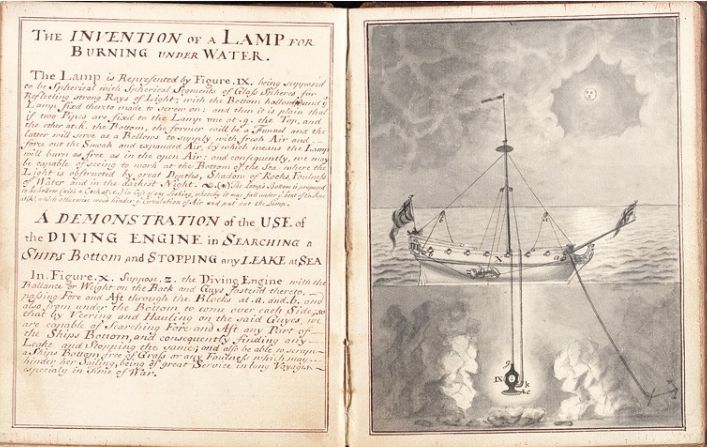 The INVENTION of a LAMP for
Burning under Water.
The Lamp is Represented by Figure.IX. being supposed
to be Spherical with Spherical Segments of Glass Spheres, for
Reflecting strong Rays of Light; with the Bottom hallow and
Lamp fixed thereto made to screw on: and then it is plain that
if two Pipes are fixed to the Lamp one at .g. the Top, and
the other at .k. the Bottom, the former will be a Funnel and the
latter will serve as a Bellows to supply with fresh Air and
force out the Smoak and expanded Air, by which means the Lamp
will burn as free as in the open Air: and consequently, we may
be capable of seeing to work at the Bottom of the Sea where the
Light is obstructed by great Depths, Shadow of Rocks, Foulness
of Water and in the darkest Night.
A DEMONSTRATION of the USE of
the DIVING ENGINE in Searching a
Ships Bottom and Stopping any LEAKE at SEA
In Figure.X. Suppose .z. the Diving Engine with the
Ballance or Weight on the Back and Guys fastend thereto,
passing Fore and Aft through the Blocks at .a. and .b. and
also from under the Bottom to come over each Side, so
that by Veering and Hauling on the said Guys, we
are capable of Searching Fore and Aft any Part of
the Ships Bottom, and consequently finding any
Leake and Stopping the same; and also be able to scrape
a Ships Bottom free of Grass or any Foulness which may
hinder her Sailing, being of great Service in long Voyages
especialy in time of War.
X
g
IX
k